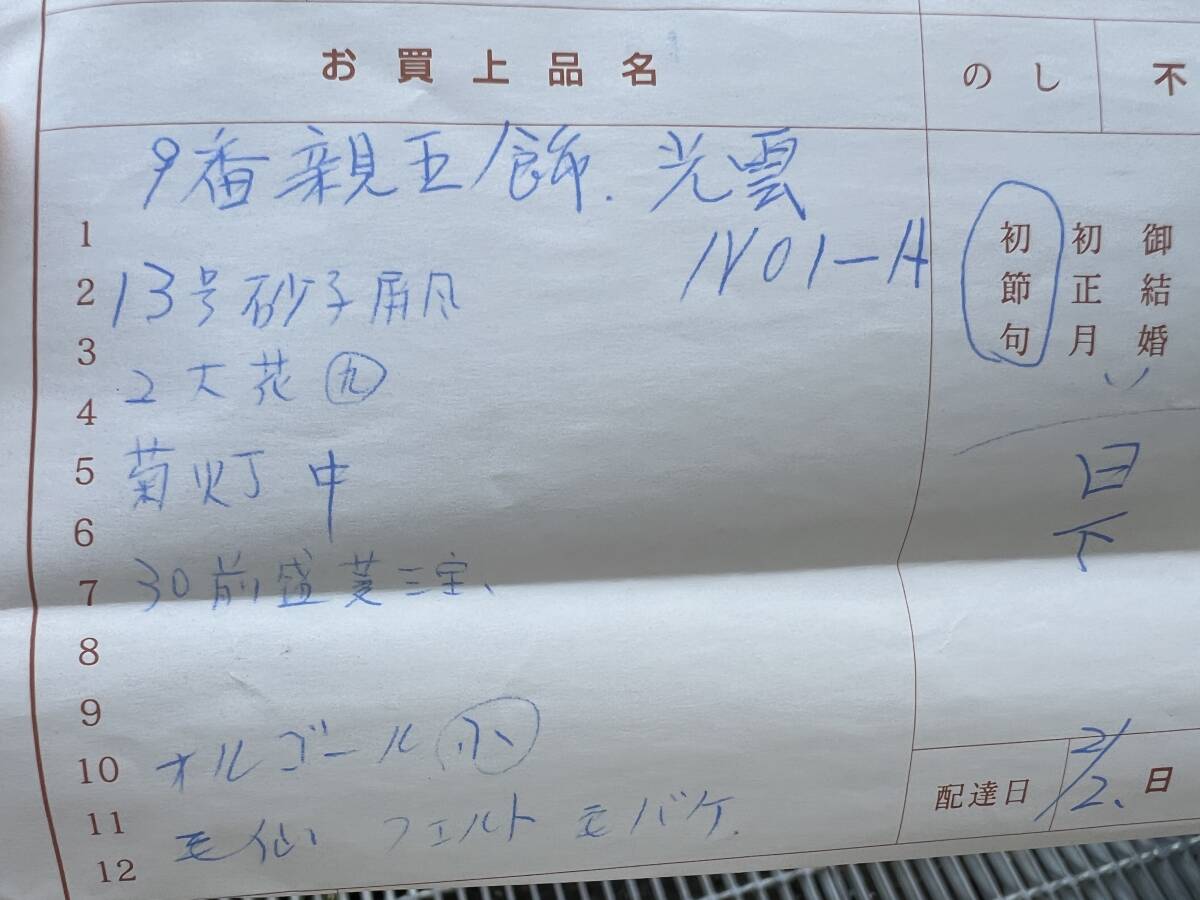 お買上品名 のし 不
9番親王飾. 光雲
1
1Y01-A
初節句 初正月 御結婚
2 13号砂子屏風
3
2大花 ㊈
4
5 菊灯 中
6
7 30前盛菱三宝、
8
9
10 オルゴール 小
11
毛仙 フェルト 毛バケ.
12
配達日 2/2. 日